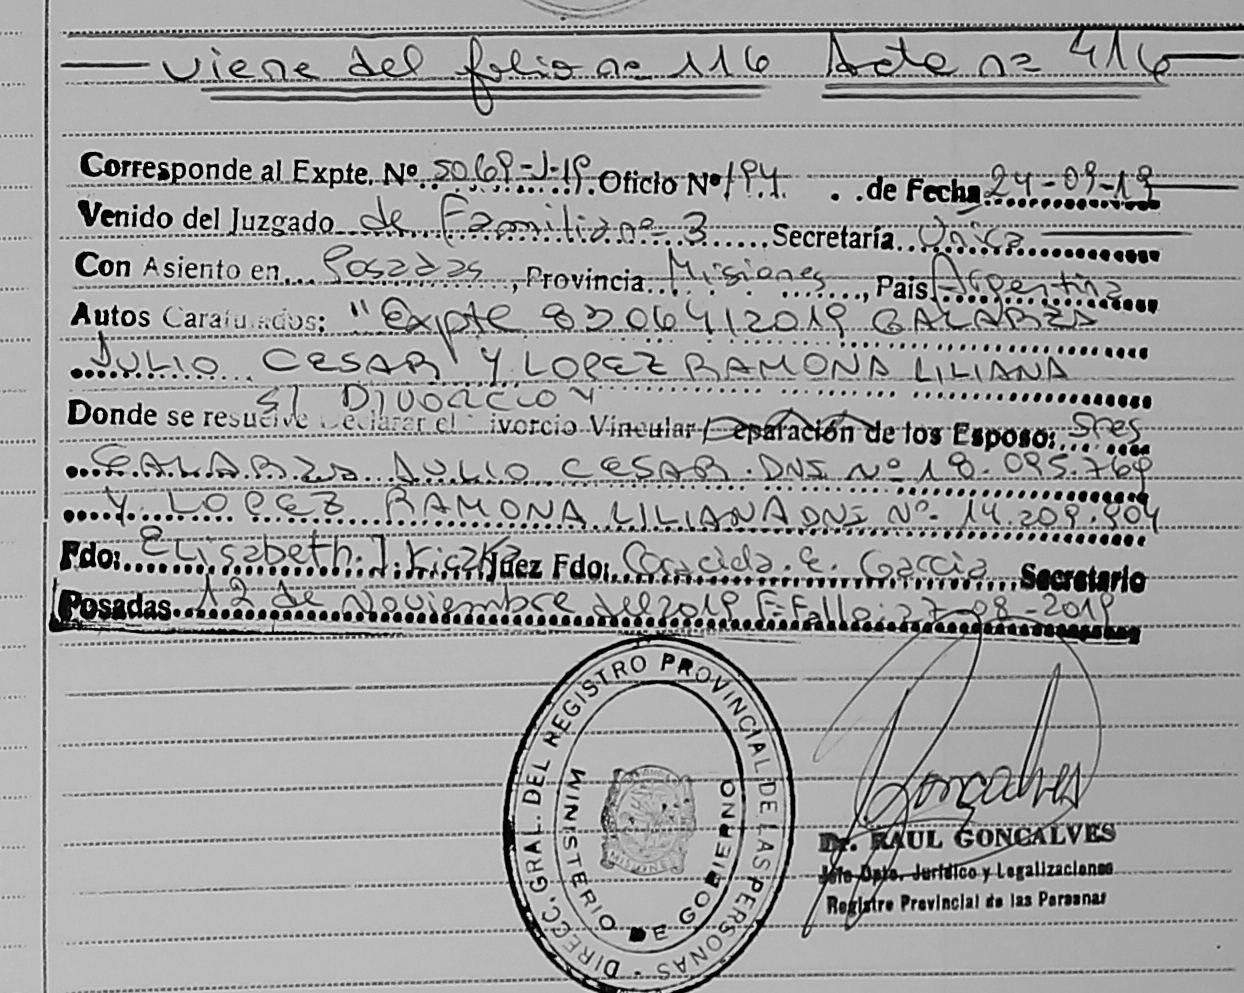 viene del folio nº 116 Acta nº 416
Corresponde al Expte. Nº 5069-J-19. Oficio Nº 194. de Fecha 24-09-19
Venido del Juzgado de Familia nº 3 Secretaría Única
Con Asiento en Posadas, Provincia Misiones, Pais Argentina
Autos Caratulados: "Expte 83064/2019 GALARZA
JULIO CESAR Y LOPEZ RAMONA LILIANA
S/ DIVORCIO"
Donde se resuelve Declarar el Divorcio Vincular / Separación de los Esposo: Sres
GALARZA JULIO CESAR. DNI Nº 18.095.769
Y LOPEZ RAMONA LILIANA DNI Nº 14.209.904
Fdo: Elisabeth. J. Juez Fdo: E. Garcia Secretario
Posadas 12 de Noviembre del 2019 F. Fallo: 27-08-2019
DIRECC. GRAL. DEL REGISTRO PROVINCIAL DE LAS PERSONAS
MINISTERIO DE GOBIERNO
MISIONES
Goncalves
Dr. RAUL GONCALVES
Jefe Dpto. Jurídico y Legalizaciones
Registro Provincial de las Personas